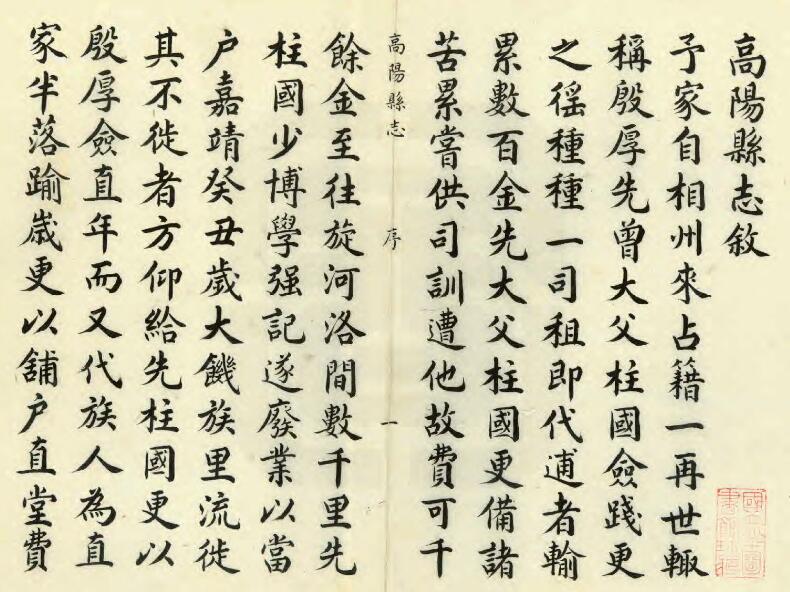 高陽縣志敘
予家自相州來占籍一再世輙
稱殷厚先曾大父柱國僉踐更
之徭種種一司租即代逋者輸
累數百金先大父柱國更備諸
苦累嘗供司訓遭他故費可千
高陽縣志
序
一
餘金至往旋河洛間數千里先
柱國少博學强記遂廢業以當
户嘉靖癸丑歲大饑族里流徙
其不徙者方仰給先柱國更以
殷厚僉直年而又代族人為直
家半落踰嵗更以舖户直堂費